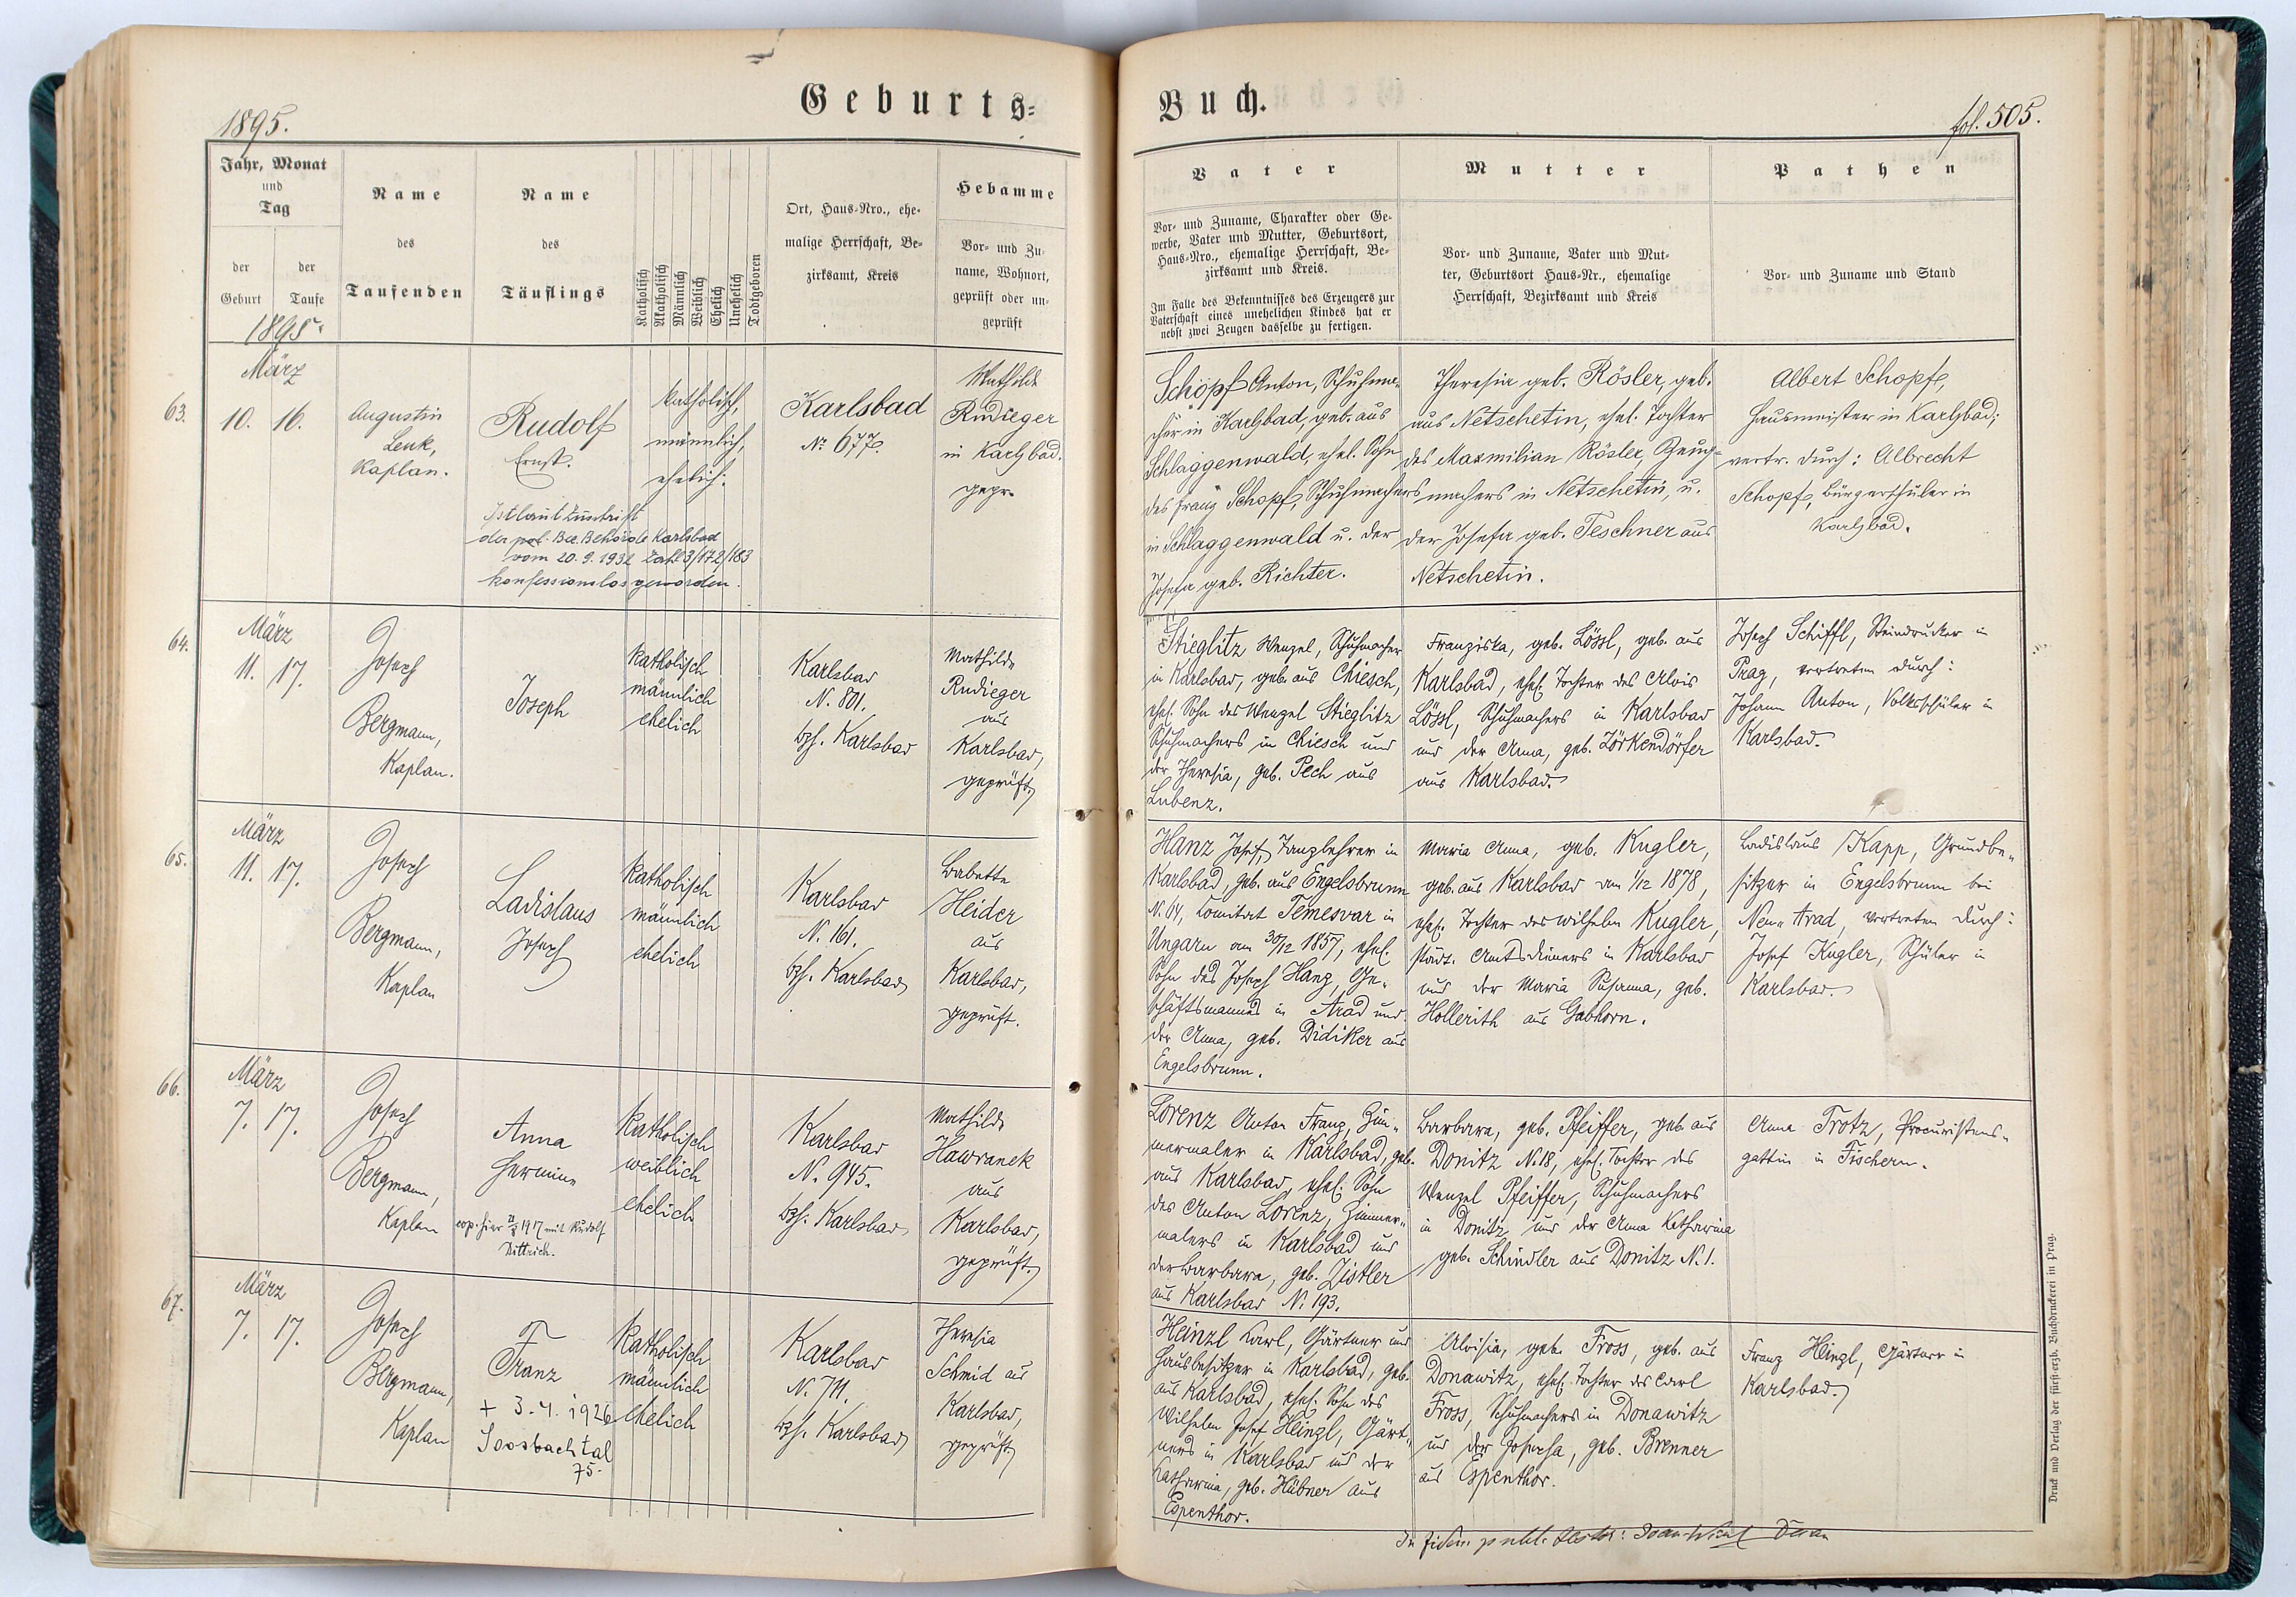 1895.
Geburts-
Buch.
fol. 505.
Jahr, Monat
und
Tag
der
Geburt
der
Taufe
Name
des
Taufenden
Name
des
Täuflings
Katholisch
Akatholisch
Männlich
Weiblich
Ehelich
Unehelich
Todtgeboren
Ort, Haus-Nro., ehe-
malige Herrschaft, Be-
zirksamt, Kreis
Hebamme
Vor- und Zu-
name, Wohnort,
geprüft oder un-
geprüft
Vater
Vor- und Zuname, Charakter oder Ge-
werbe, Vater und Mutter, Geburtsort,
Haus-Nro., ehemalige Herrschaft, Be-
zirksamt und Kreis.
Im Falle des Bekenntnisses des Erzeugers zur
Vaterschaft eines unehelichen Kindes hat er
nebst zwei Zeugen dasselbe zu fertigen.
Mutter
Vor- und Zuname, Vater und Mut-
ter, Geburtsort Haus-Nr., ehemalige
Herrschaft, Bezirksamt und Kreis
Pathen
Vor- und Zuname und Stand
1895.
63.
März
10. 16.
Augustin
Lenk,
Kaplan.
Rudolf
Ernst.
Ist laut Zuschrift
der pol. Bez. Behörde Karlsbad
vom 20.9.1932 Zahl 3/172/183
konfessionslos geworden.
katholisch,
männlich,
ehelich.
Karlsbad
No 677.
Mathilde
Rudieger
in Karlsbad.
gepr.
Schöpf Anton, Schuhma-
cher in Karlsbad, geb. aus
Schlaggenwald, ehel. Sohn
des Franz Schöpf, Schuhmachers
in Schlaggenwald u. der
Josefa geb. Richter.
Theresia geb. Rösler, geb.
aus Netschetin, ehel. Tochter
des Maxmilian Rösler, Zeug-
machers in Netschetin, u.
der Josefa geb. Teschner aus
Netschetin.
Albert Schöpf,
Hausmeister in Karlsbad;
vertr. durch: Albrecht
Schopf, Bürgerschüler in
Karlsbad.
64.
März
11. 17.
Joseph
Bergmann,
Kaplan.
Joseph
katholisch
männlich
ehelich
Karlsbad
N. 801.
bzh. Karlsbad
Mathilde
Rudieger
aus
Karlsbad,
geprüft.
Stieglitz Wenzel, Schuhmacher
in Karlsbad, geb. aus Chiesch,
ehel. Sohn des Wenzel Stieglitz
Schuhmachers in Chiesch und
der Theresia, geb. Pech aus
Lubenz.
Franziska, geb. Lössl, geb. aus
Karlsbad, ehel. Tochter des Alois
Lössl, Schuhmachers in Karlsbad
und der Anna, geb. Zörkendörfer
aus Karlsbad.
Joseph Schiffl, Steindrucker in
Prag, vertreten durch:
Johann Anton, Volksschüler in
Karlsbad.
65.
März
11. 17.
Joseph
Bergmann,
Kaplan
Ladislaus
Joseph
katholisch
männlich
ehelich
Karlsbad
N. 161.
bzh. Karlsbad
Babette
Heider
aus
Karlsbad,
geprüft.
Hanz Josef, Tanzlehrer in
Karlsbad, geb. aus Engelsbrunn
N. 64, Comitat Temesvar in
Ungarn am 30/12 1857, ehel.
Sohn des Joseph Hanz, Ge-
schäftsmannes in Arad und
der Anna, geb. Didiker aus
Engelsbrunn.
Maria Anna, geb. Kugler,
geb. aus Karlsbad am 1/12 1878,
ehel. Tochter des Wilhelm Kugler,
städt. Amtsdieners in Karlsbad
und der Maria Susanna, geb.
Hollerith aus Gabhorn.
Ladislaus Kapp, Grundbe-
sitzer in Engelsbrunn bei
Neu-Arad, vertreten durch:
Josef Kugler, Schüler in
Karlsbad.
66.
März
7. 17.
Joseph
Bergmann,
Kaplan
Anna
Hermine
cop. hier 1917 mit Rudolf
Dittrich.
katholisch
weiblich
ehelich
Karlsbad
N. 945.
bzh. Karlsbad
Mathilde
Hawranek
aus
Karlsbad,
geprüft.
Lorenz Anton Franz, Zim-
mermaler in Karlsbad, geb.
aus Karlsbad, ehel. Sohn
des Anton Lorenz, Zimmer-
malers in Karlsbad und
der Barbara, geb. Zistler
aus Karlsbad N. 193.
Barbara, geb. Pfeiffer, geb. aus
Donitz N. 18, ehel. Tochter des
Wenzel Pfeiffer, Schuhmachers
in Donitz und der Anna Katharina
geb. Schindler aus Donitz N. 1.
Anna Trotz, Procuristens-
gattin in Fischern.
67.
März
7. 17.
Joseph
Bergmann,
Kaplan
Franz
+ 3.4.1926
Soosbachtal
75.
katholisch
männlich
ehelich
Karlsbad
N. 711.
bzh. Karlsbad
Theresia
Schmid aus
Karlsbad,
geprüft
Heinzl Karl, Gärtner und
Hausbesitzer in Karlsbad, geb.
aus Karlsbad, ehel. Sohn des
Wilhelm Josef Heinzl, Gärt-
ners in Karlsbad und der
Katharina, geb. Hübner aus
Espenthor.
Aloisia, geb. Fross, geb. aus
Donawitz, ehel. Tochter des Carl
Fross, Schuhmachers in Donawitz
und der Josefa, geb. Brenner
aus Espenthor.
Franz Heinzl, Gärtner in
Karlsbad.
In fidem publ.
Druck und Verlag der fürst-erzb. Buchdruckerei in Prag.